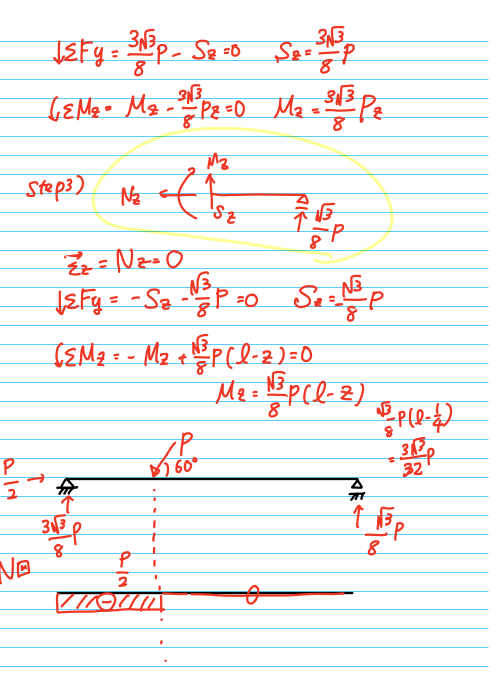 ↓ΣFy = 3√3/8 P - Sz = 0 Sz = 3√3/8 P
ΣMz = Mz - 3√3/8 Pz = 0 Mz = 3√3/8 Pz
Mz
Step3) Nz
Sz
↑ √3/8 P
Σz = Nz = 0
↓ΣFy = -Sz - √3/8 P = 0 Sz = -√3/8 P
ΣMz = - Mz + √3/8 P(l-z) = 0
Mz = √3/8 P(l-z)
√3/8 P(l-1/4)
= 3√3/32 P
P
60°
P/2 →
↑ 3√3/8 P
↑ √3/8 P
P/2
N図
⊖
0